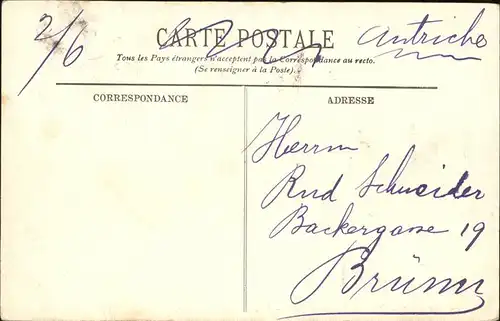 2/6
CARTE POSTALE
Autriche
Tous les Pays étrangers n'acceptent pas la Correspondance au recto.
(Se renseigner à la Poste).
CORRESPONDANCE
ADRESSE
Herrn
Rud Schneider
Backergasse 19
Brünn